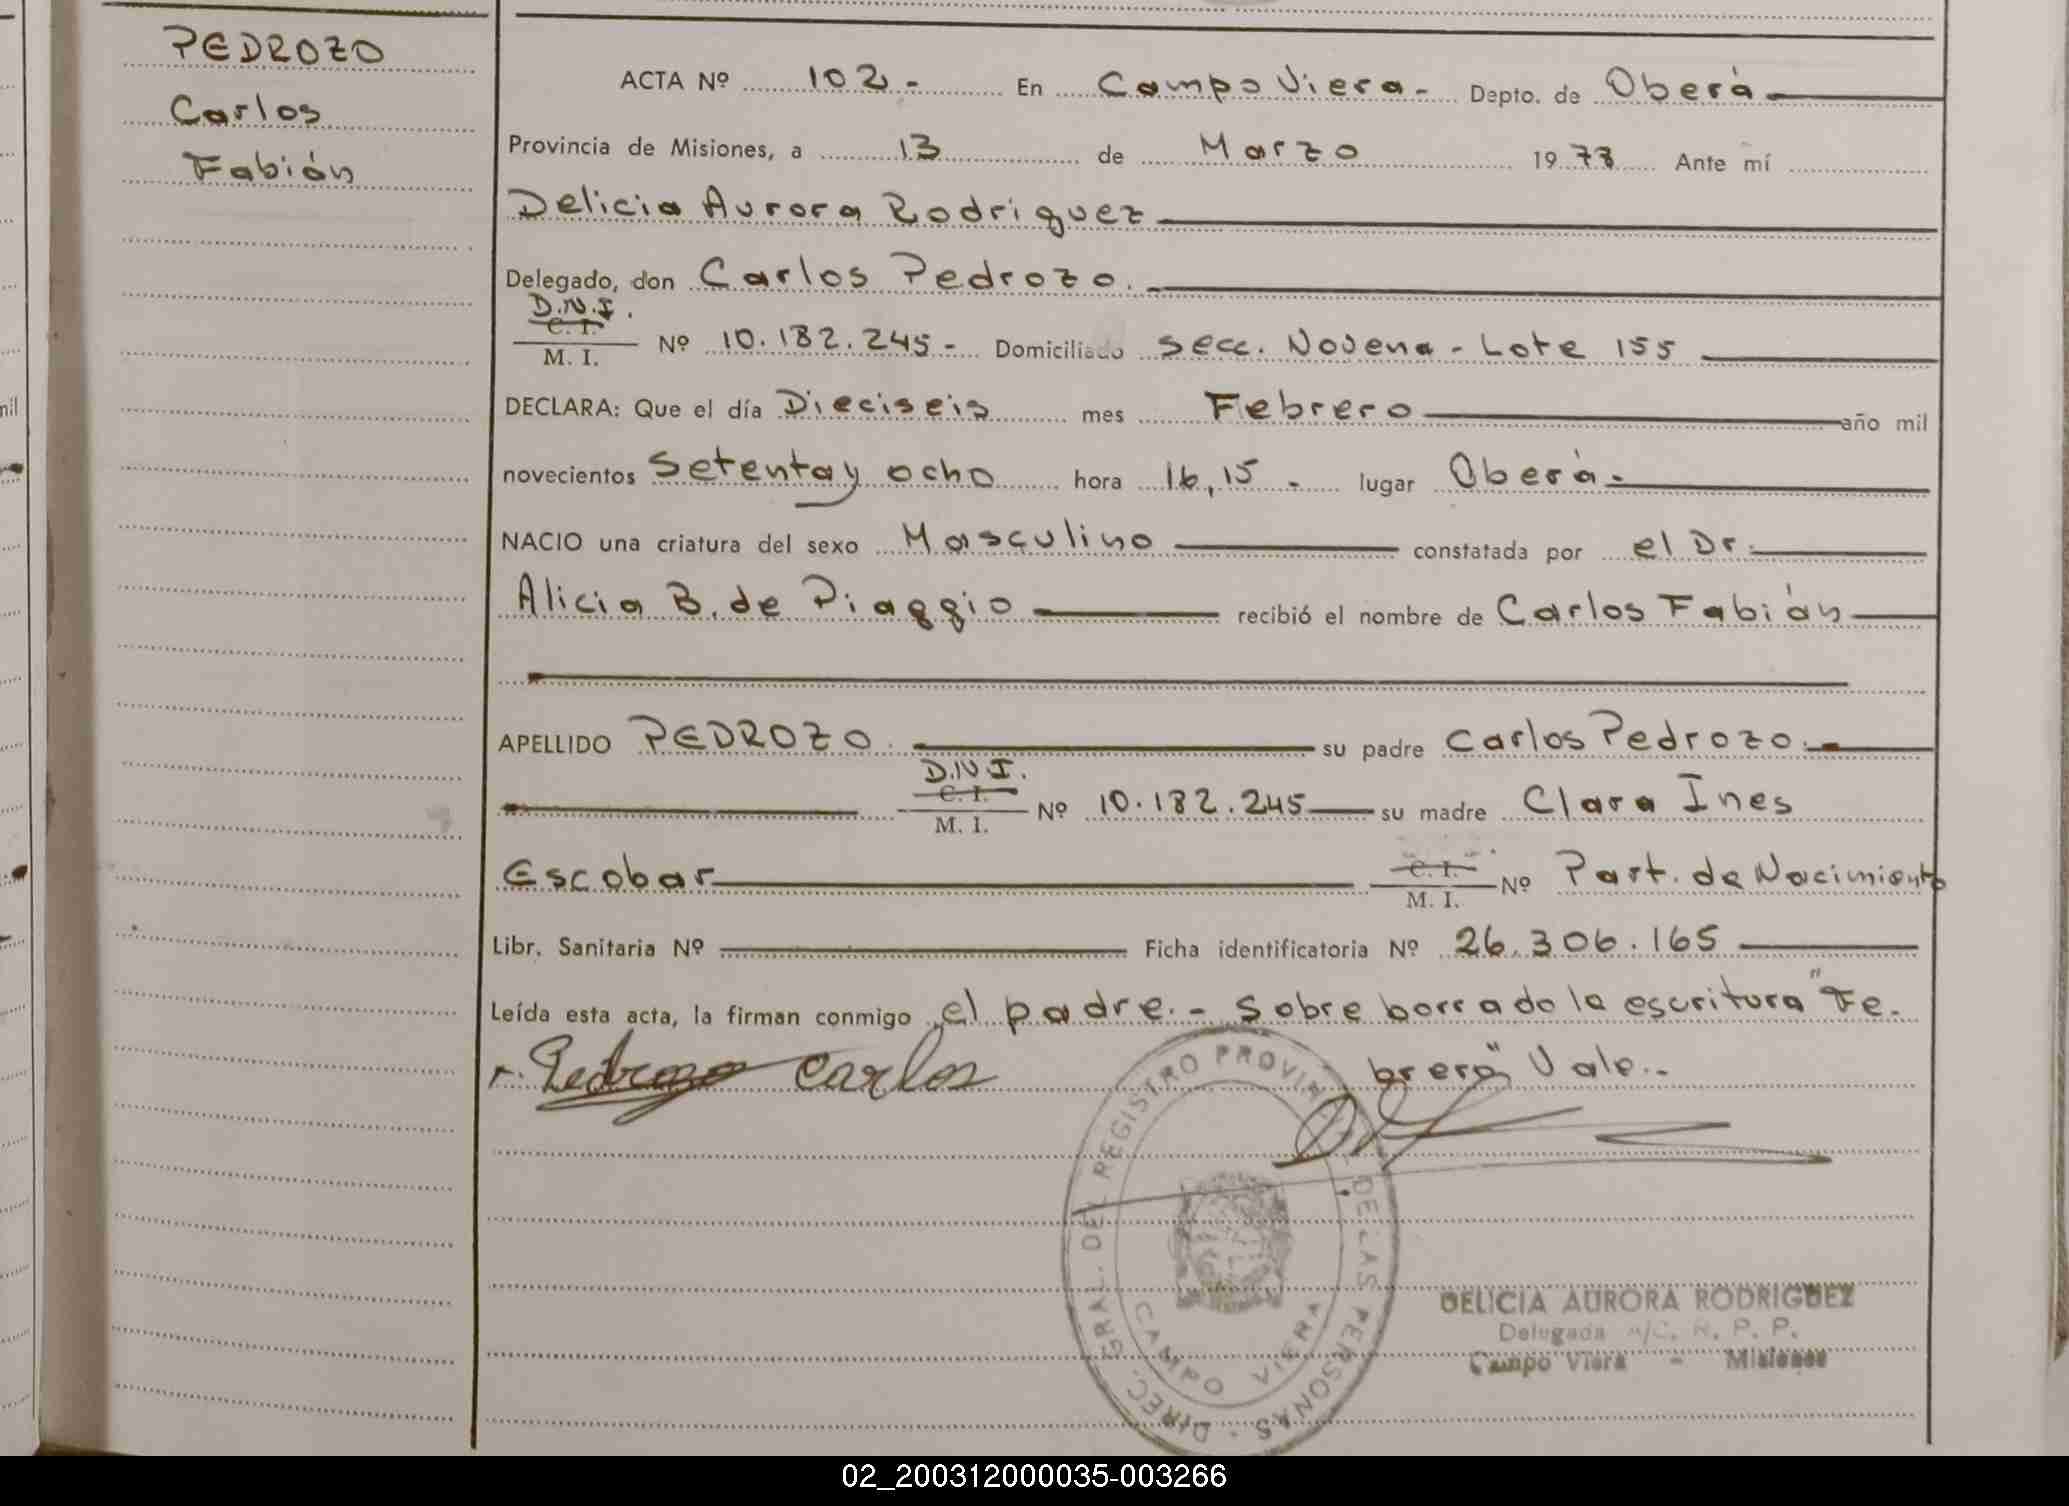 PEDROZO
Carlos
Fabián
ACTA Nº 102.- En Campo Viera.- Depto. de Oberá
Provincia de Misiones, a 13 de Marzo 1978 Ante mí
Delicia Aurora Rodriguez
Delegado, don Carlos Pedrozo.
D.N.I.
C. I.
M. I. Nº 10.182.245- Domiciliado secc. Novena - Lote 155
DECLARA: Que el día Dieciseis mes Febrero año mil
novecientos Setenta y ocho hora 16,15 - lugar Oberá.
NACIO una criatura del sexo Masculino constatada por el Dr.
Alicia B. de Piaggio recibió el nombre de Carlos Fabián
APELLIDO PEDROZO. su padre Carlos Pedrozo.-
D.N.I.
C. I.
M. I. Nº 10.182.245 su madre Clara Ines
Escobar C. I.
M. I. Nº Part. de Nacimiento
Libr. Sanitaria Nº Ficha identificatoria Nº 26.306.165
Leída esta acta, la firman conmigo el padre.- Sobre borrado la escritura "Fe.
brero" Vale.-
Pedrozo Carlos
DIREC. GRAL. DEL REGISTRO PROVINCIAL DE LAS PERSONAS
CAMPO VIERA
DELICIA AURORA RODRIGUEZ
Delegada A/C. R. P. P.
Campo Viera - Misiones
02_200312000035-003266